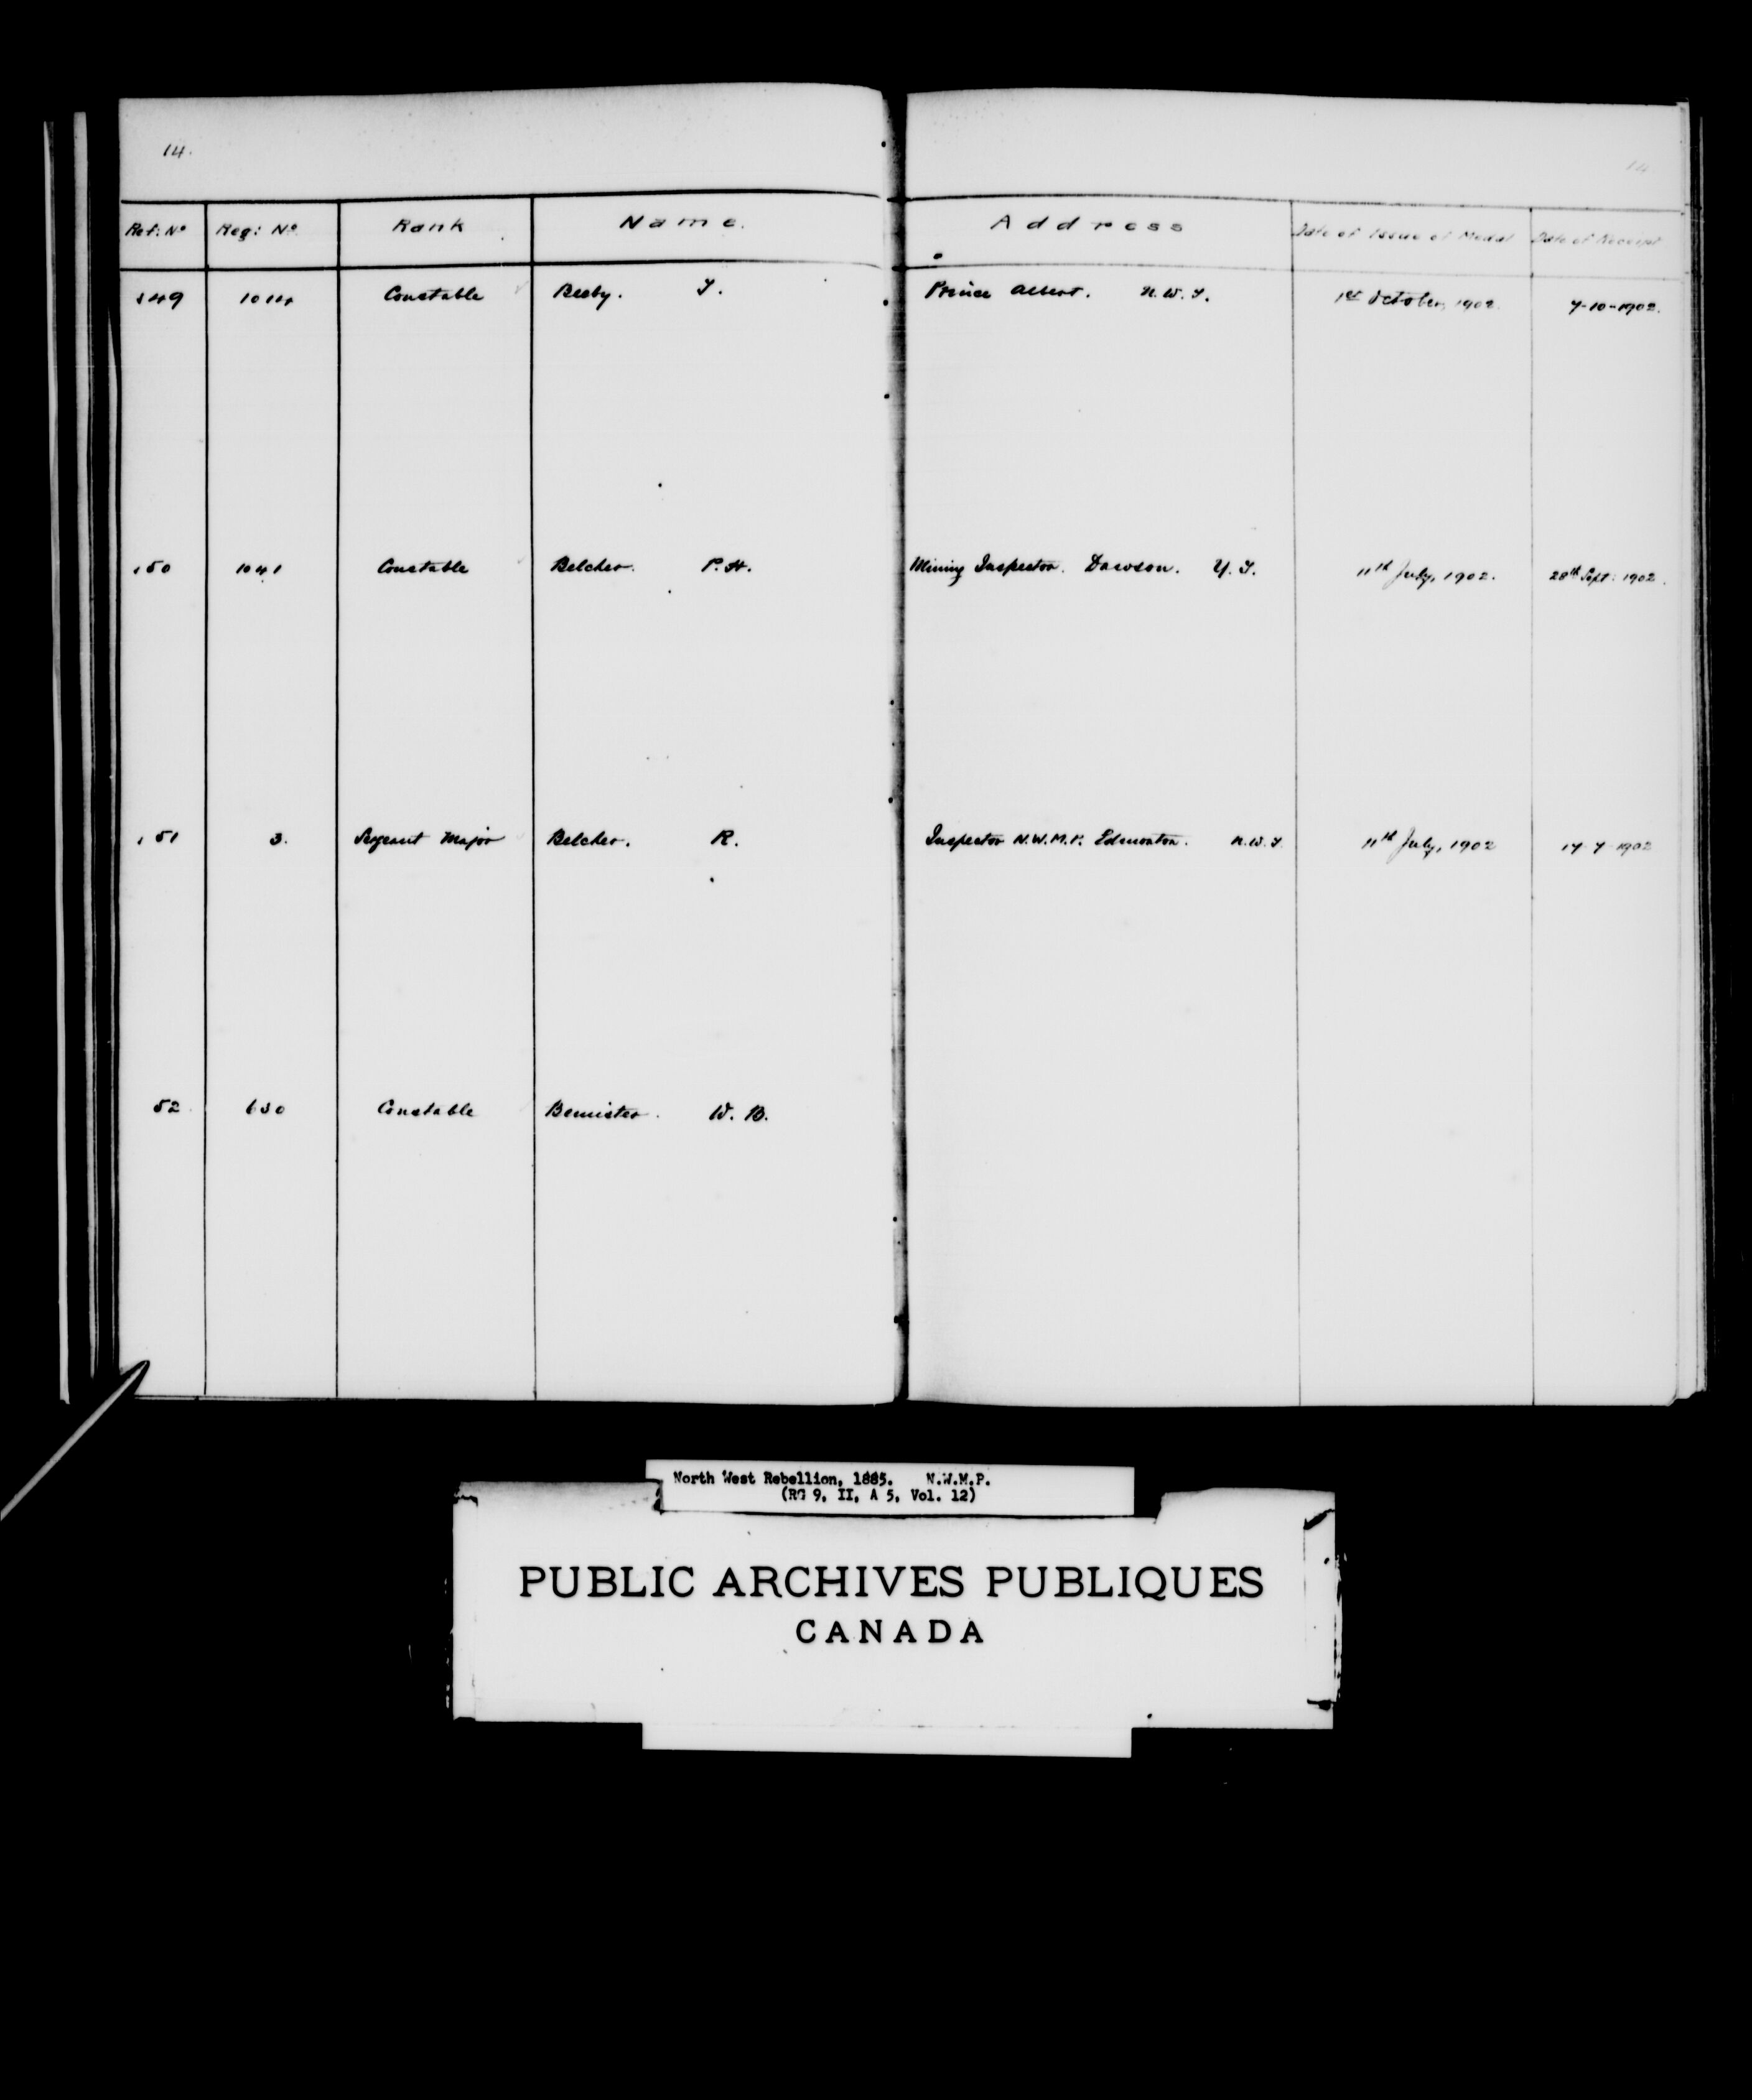 14.
14
Ref: No Reg: No Rank Name. Address Date of Issue of Medal Date of Receipt
49 1014 Constable Beeby. T. Prince Albert. N.W.T. 1st October, 1902. 7-10-1902.
50 1041 Constable Belcher. P.H. Mining Inspector. Dawson. Y.T. 11th July, 1902. 28th Sept: 1902.
51 3. Sergeant Major Belcher. R. Inspector N.W.M.P. Edmonton. N.W.T. 11th July, 1902 17-7-1902
52 630 Constable Bemister. W. B.
North West Rebellion, 1885. N.W.M.P.
(RG 9, II, A 5, Vol. 12)
PUBLIC ARCHIVES PUBLIQUES
CANADA